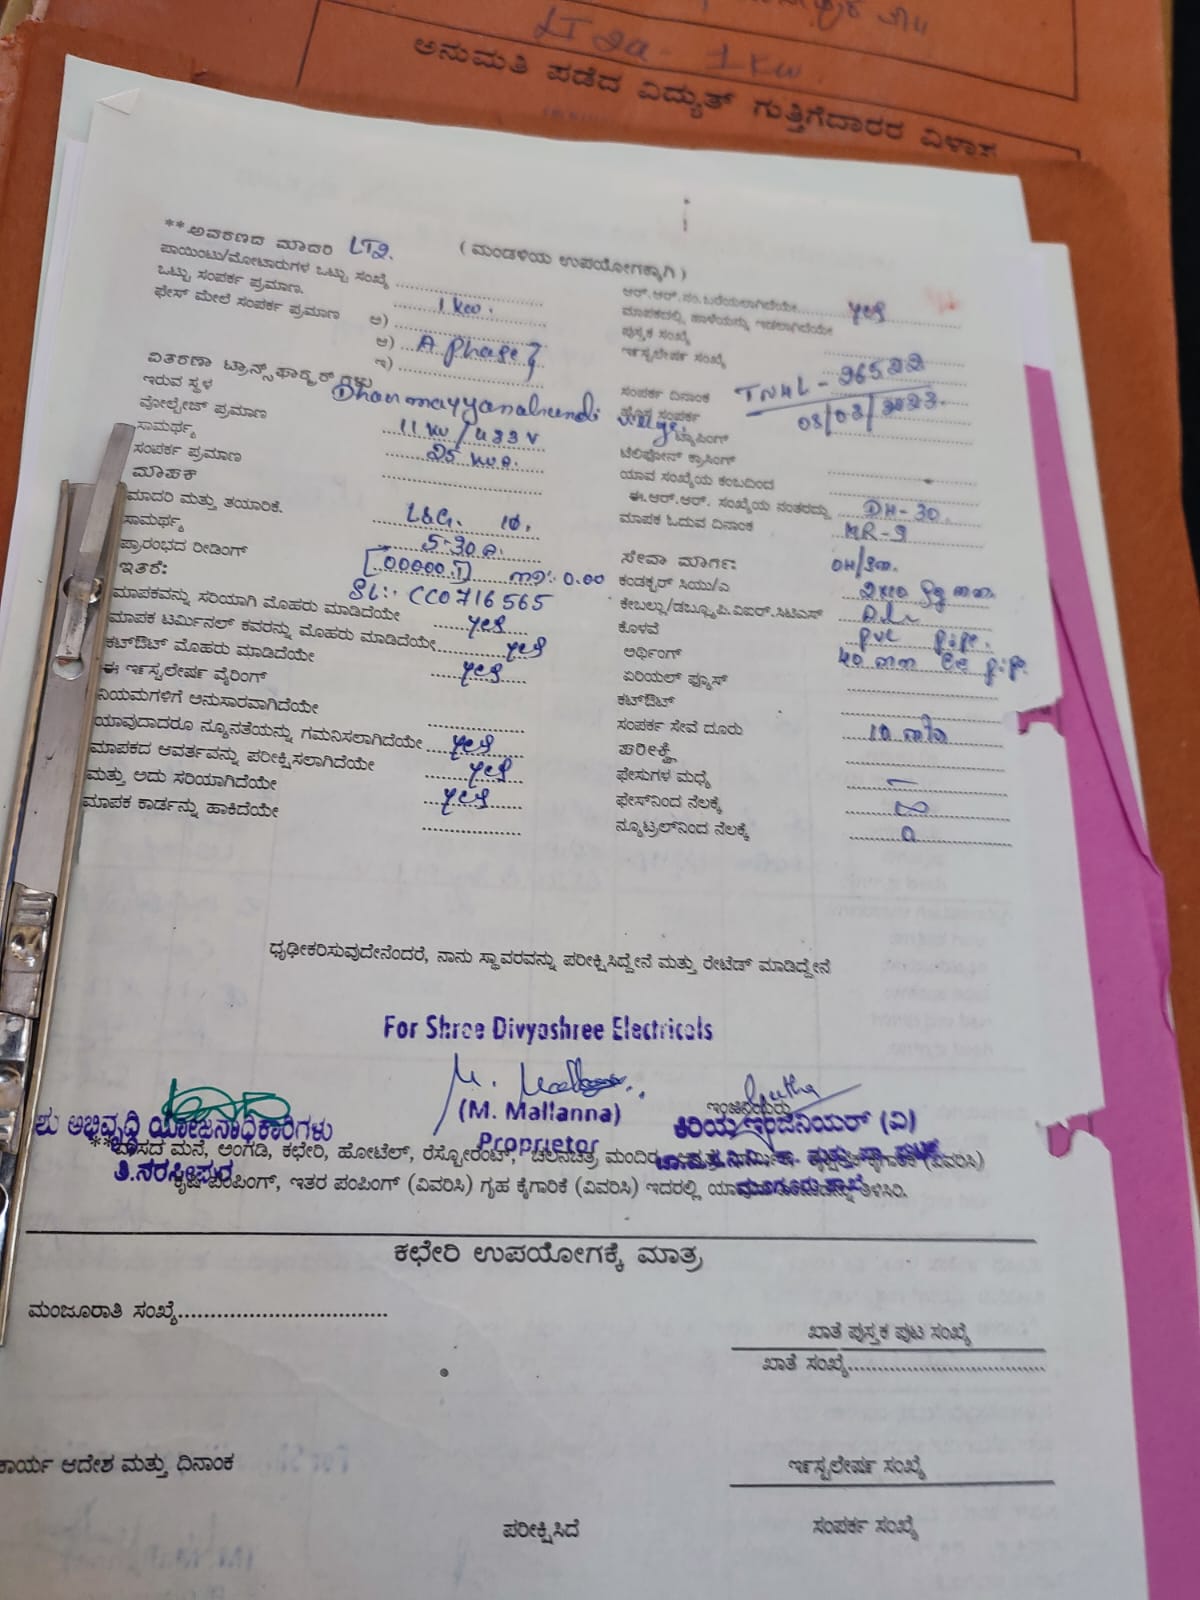 LT2a - 1 Kw.
ಅನುಮತಿ ಪಡೆದ ವಿದ್ಯುತ್ ಗುತ್ತಿಗೆದಾರರ ವಿಳಾಸ
**ಅವರಣದ ಮಾದರಿ LT2. (ಮಂಡಳಿಯ ಉಪಯೋಗಕ್ಕಾಗಿ)
ಪಾಯಿಂಟು/ಮೋಟಾರುಗಳ ಒಟ್ಟು ಸಂಖ್ಯೆ
ಒಟ್ಟು ಸಂಪರ್ಕ ಪ್ರಮಾಣ. 1 Kw.
ಫೇಸ್ ಮೇಲೆ ಸಂಪರ್ಕ ಪ್ರಮಾಣ ಅ)
ಆ) A phase
ಇ)
ವಿತರಣಾ ಟ್ರಾನ್ಸ್‌ಫಾರ್ಮರ್‌ಗಳು
ಇರುವ ಸ್ಥಳ
ವೋಲ್ಟೇಜ್ ಪ್ರಮಾಣ 11 KV/433 V
ಸಾಮರ್ಥ್ಯ 25 KVA.
ಸಂಪರ್ಕ ಪ್ರಮಾಣ
ಮಾಪಕ
ಮಾದರಿ ಮತ್ತು ತಯಾರಿಕೆ. L&G. 1Φ.
ಸಾಮರ್ಥ್ಯ 5-30 A.
ಪ್ರಾರಂಭದ ರೀಡಿಂಗ್ 0.00
ಇತರೆ: SL:- CC0716565
ಮಾಪಕವನ್ನು ಸರಿಯಾಗಿ ಮೊಹರು ಮಾಡಿದೆಯೇ yes
ಮಾಪಕ ಟರ್ಮಿನಲ್ ಕವರನ್ನು ಮೊಹರು ಮಾಡಿದೆಯೇ yes
ಕಟ್‌ಔಟ್ ಮೊಹರು ಮಾಡಿದೆಯೇ yes
ಈ ಇನ್‌ಸ್ಟಲೇಷನ್ ವೈರಿಂಗ್
ನಿಯಮಗಳಿಗೆ ಅನುಸಾರವಾಗಿದೆಯೇ
ಯಾವುದಾದರೂ ನ್ಯೂನತೆಯನ್ನು ಗಮನಿಸಲಾಗಿದೆಯೇ yes
ಮಾಪಕದ ಆವರ್ತವನ್ನು ಪರೀಕ್ಷಿಸಲಾಗಿದೆಯೇ yes
ಮತ್ತು ಅದು ಸರಿಯಾಗಿದೆಯೇ yes
ಮಾಪಕ ಕಾರ್ಡನ್ನು ಹಾಕಿದೆಯೇ
ಆರ್.ಆರ್.ನಂ.ಬರೆಯಲಾಗಿದೆಯೇ yes
ಮಾಪಕದಲ್ಲಿ ಹಾಳೆಯನ್ನು ಇಡಲಾಗಿದೆಯೇ
ಪುಸ್ತಕ ಸಂಖ್ಯೆ
ಇನ್‌ಸ್ಟಲೇಷನ್ ಸಂಖ್ಯೆ
ಸಂಪರ್ಕ ದಿನಾಂಕ TNHL - 26522
ಸಂಪರ್ಕ
ಟ್ಯಾಪಿಂಗ್
ಟೆಲಿಫೋನ್ ಕ್ರಾಸಿಂಗ್
ಯಾವ ಸಂಖ್ಯೆಯ ಕಂಬದಿಂದ
ಈ.ಆರ್.ಆರ್. ಸಂಖ್ಯೆಯ ನಂತರದ್ದು DH-30.
ಮಾಪಕ ಓದುವ ದಿನಾಂಕ MR-9
ಸೇವಾ ಮಾರ್ಗ:
ಕಂಡಕ್ಟರ್ ಸಿಯು/ಎ
ಕೇಬಲ್ಲು/ಡಬ್ಲ್ಯೂ.ಪಿ.ವಿಐಆರ್.ಸಿಟಿಎಸ್
ಕೊಳವೆ PVC pipe.
ಅರ್ಥಿಂಗ್
ಏರಿಯಲ್ ಫ್ಯೂಸ್
ಕಟ್‌ಔಟ್
ಸಂಪರ್ಕ ಸೇವೆ ದೂರು
ಪರೀಕ್ಷೆ
ಫೇಸುಗಳ ಮಧ್ಯೆ –
ಫೇಸ್‌ನಿಂದ ನೆಲಕ್ಕೆ ∞
ನ್ಯೂಟ್ರಲ್‌ನಿಂದ ನೆಲಕ್ಕೆ 0
ಧೃಢೀಕರಿಸುವುದೇನೆಂದರೆ, ನಾನು ಸ್ಥಾವರವನ್ನು ಪರೀಕ್ಷಿಸಿದ್ದೇನೆ ಮತ್ತು ರೇಟೆಡ್ ಮಾಡಿದ್ದೇನೆ
For Shree Divyashree Electricals
(M. Mallanna)
Proprietor
ಇಂಜಿನಿಯರು
ಕಿರಿಯ ಇಂಜಿನಿಯರ್ (ವಿ)
ಅಭಿವೃದ್ಧಿ ಯೋಜನಾಧಿಕಾರಿಗಳು
ತಿ.ನರಸೀಪುರ
**ವಾಸದ ಮನೆ, ಅಂಗಡಿ, ಕಛೇರಿ, ಹೋಟೆಲ್, ರೆಸ್ಟೋರೆಂಟ್, ಚಲನಚಿತ್ರ ಮಂದಿರ (ವಿವರಿಸಿ)
ಕೃಷಿ ಪಂಪಿಂಗ್, ಇತರ ಪಂಪಿಂಗ್ (ವಿವರಿಸಿ) ಗೃಹ ಕೈಗಾರಿಕೆ (ವಿವರಿಸಿ) ಇದರಲ್ಲಿ ತಿಳಿಸಿರಿ.
ಕಛೇರಿ ಉಪಯೋಗಕ್ಕೆ ಮಾತ್ರ
ಮಂಜೂರಾತಿ ಸಂಖ್ಯೆ
ಖಾತೆ ಪುಸ್ತಕ ಪುಟ ಸಂಖ್ಯೆ
ಖಾತೆ ಸಂಖ್ಯೆ
ಕಾರ್ಯ ಆದೇಶ ಮತ್ತು ದಿನಾಂಕ
ಇನ್‌ಸ್ಟಲೇಷನ್ ಸಂಖ್ಯೆ
ಪರೀಕ್ಷಿಸಿದೆ
ಸಂಪರ್ಕ ಸಂಖ್ಯೆ